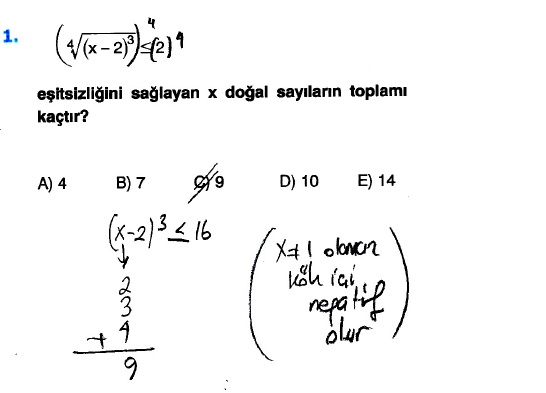 1. (∜(x – 2)³)⁴ ≤ (2)⁴
eşitsizliğini sağlayan x doğal sayıların toplamı
kaçtır?
A) 4 B) 7 C) 9 D) 10 E) 14
(x-2)³ ≤ 16
2
3
+ 4
9
x≠1 olamaz
kök içi
negatif
olur